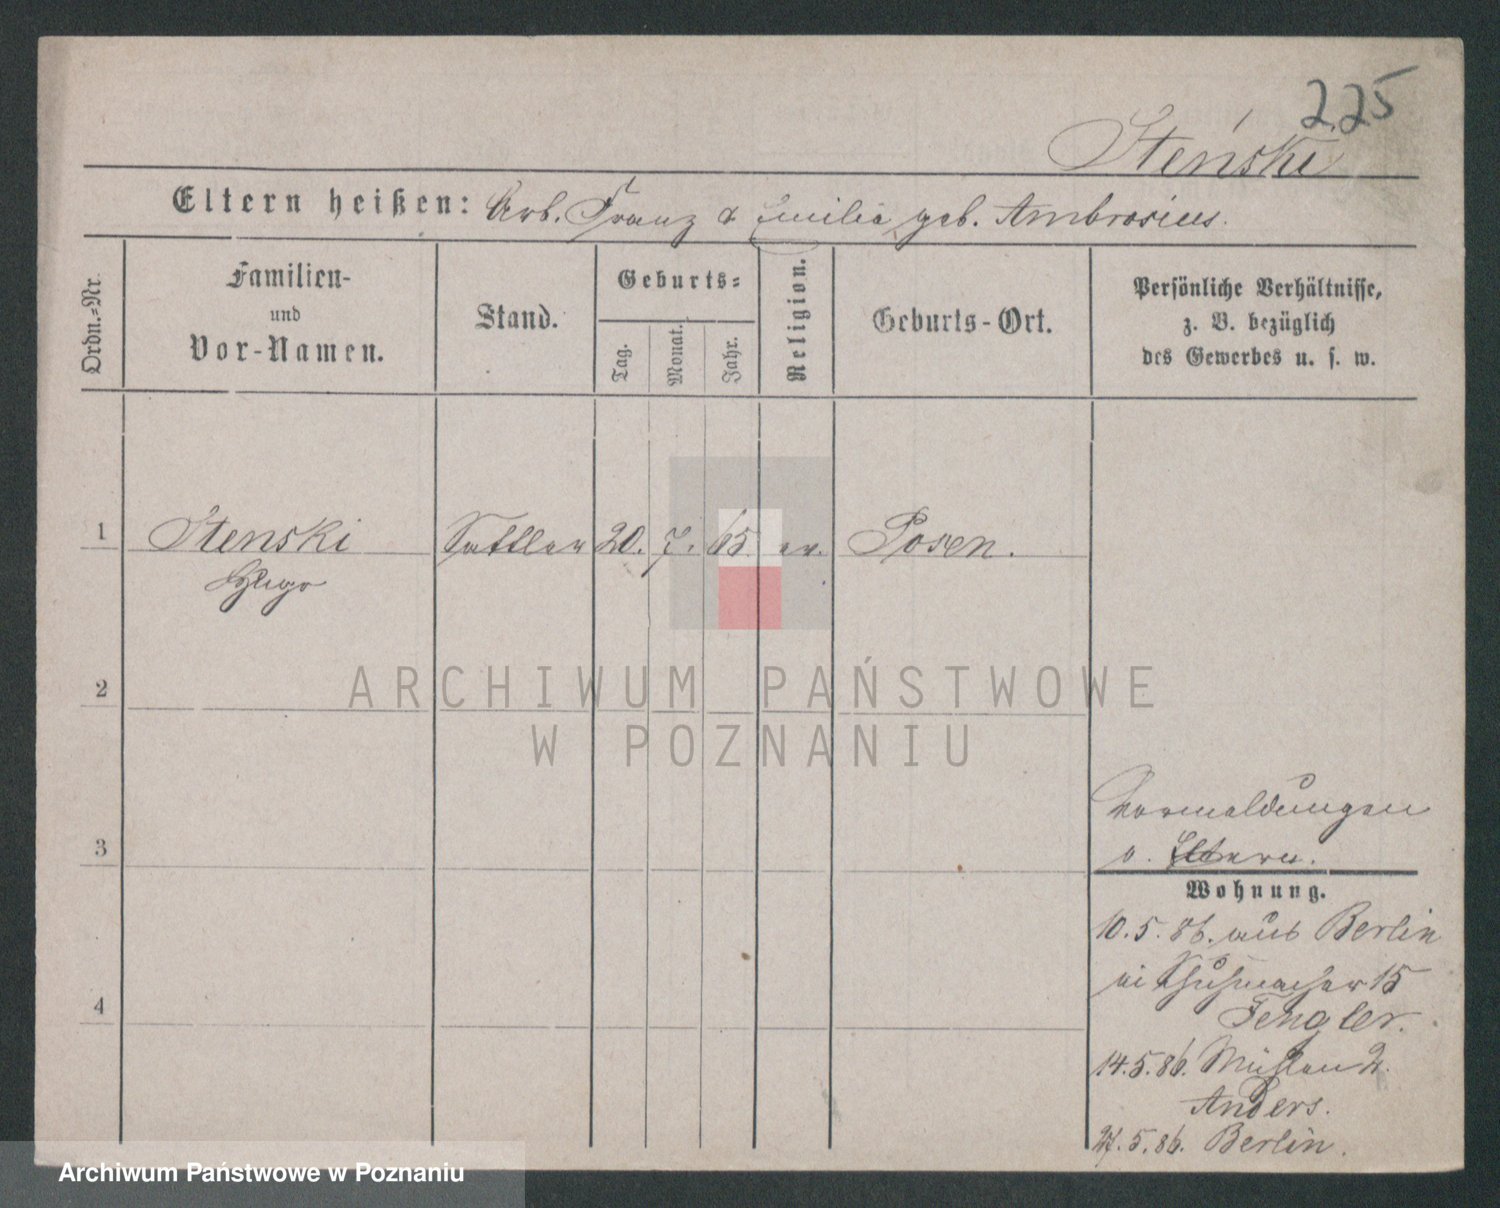 225
Steński
Eltern heißen: Arb. Franz & Emilie geb. Ambrosius.
Ordn.-Nr.
Familien-
und
Vor-Namen.
Stand.
Geburts-
Tag.
Monat.
Jahr.
Religion.
Geburts-Ort.
Persönliche Verhältnisse,
z. B. bezüglich
des Gewerbes u. s. w.
1 Stenski Sattler 20. 7. 65 ev. Posen.
Hugo
2
ARCHIWUM PAŃSTWOWE
W POZNANIU
3
Vormeldungen
s. Eltern.
Wohnung.
10.5.86. aus Berlin
Schuhmacher 15
Fengler.
4
14.5.86. Mühlen 2.
Anders.
27.5.86. Berlin.
Archiwum Państwowe w Poznaniu